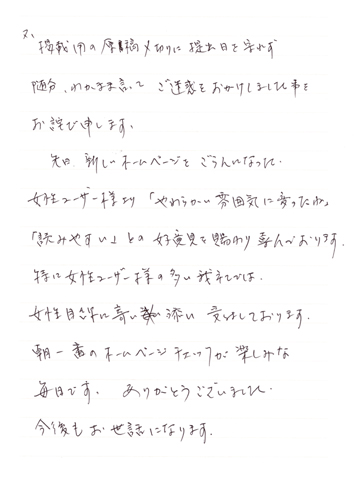 又、
掲載用の原稿〆切りに提出日を守れず
随分、わがまま言って ご迷惑をおかけしました事を
お詫び申します。
先日 新しいホームページを ごらんになった
女性ユーザー様より 「やわらかい雰囲気に変ったね」
「読みやすい」との 好意見を賜わり 喜んでおります。
特に女性ユーザー様の多い我社では、
女性目線に寄り添い 受けしております。
朝一番のホームページチェックが楽しみな
毎日です。 ありがとうございました。
今後も お世話になります。